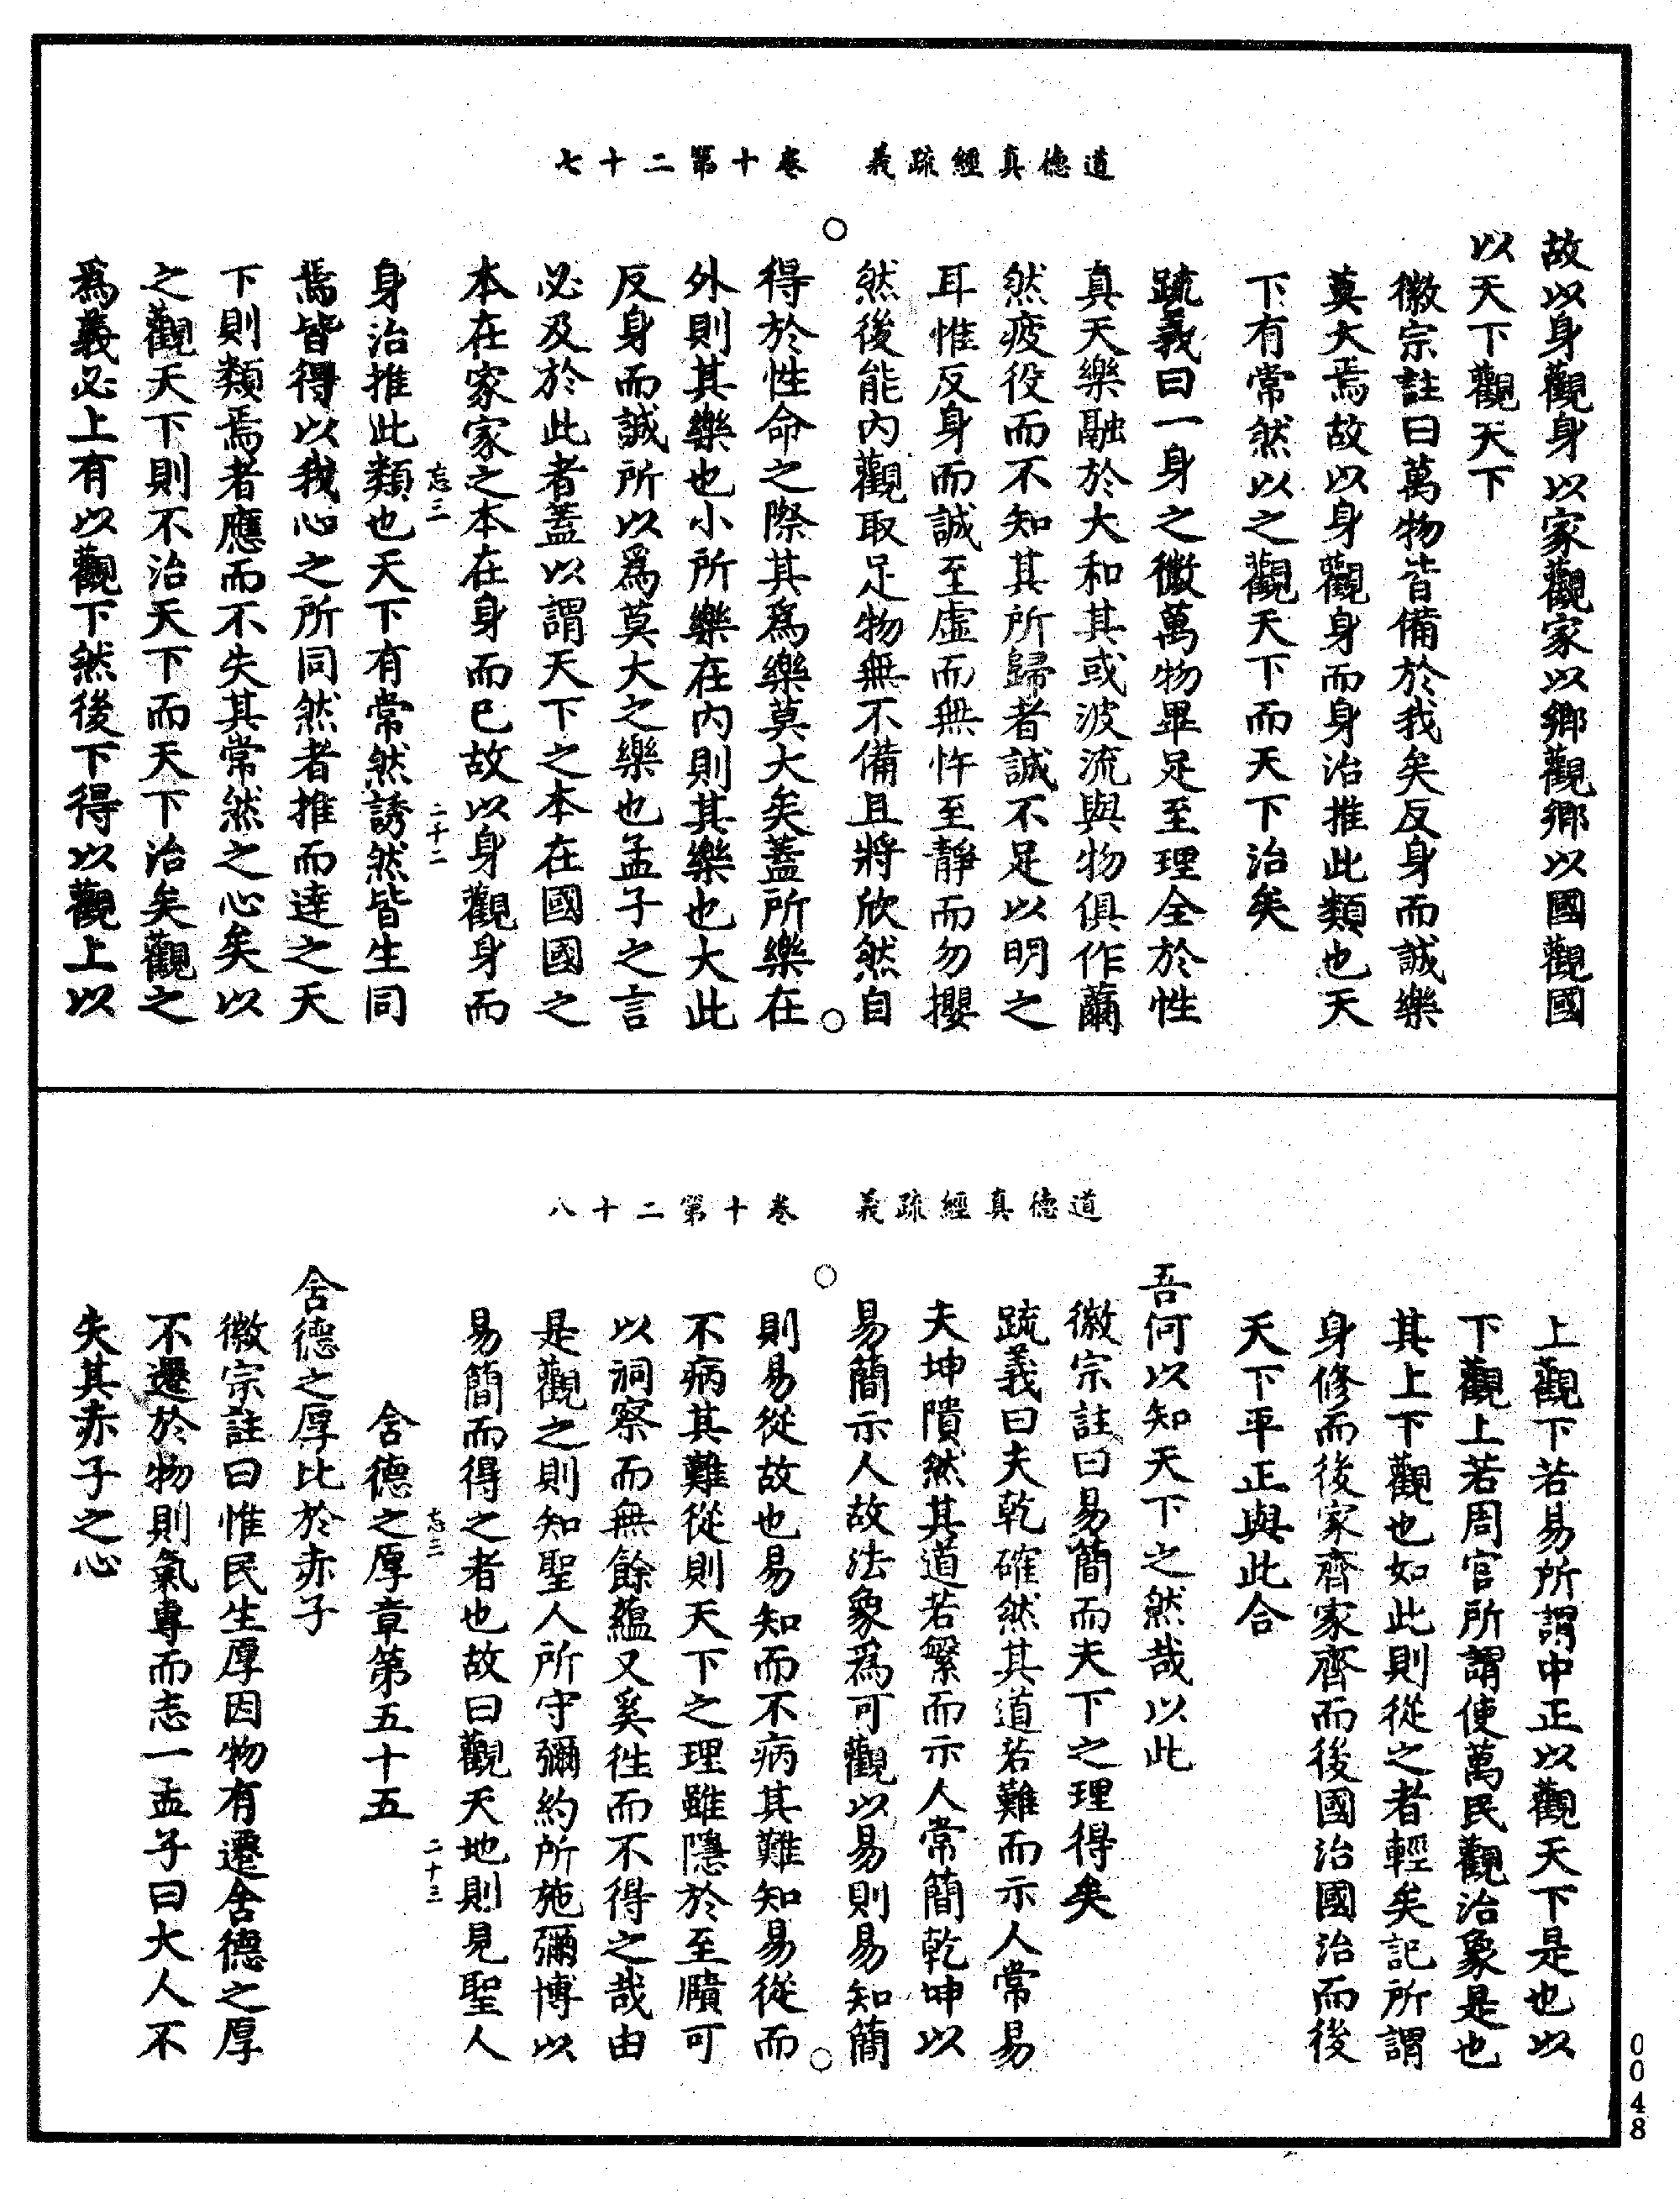 道德真經疏義　卷十第二十七
故以身觀身以家觀家以鄉觀鄉以國觀國
以天下觀天下
徽宗註曰萬物皆備於我矣反身而誠樂
莫大焉故以身觀身而身治推此類也天
下有常然以之觀天下而天下治矣
疏義曰一身之微萬物畢足至理全於性
真天樂融於大和其或波流與物俱作薾
然疲役而不知其所歸者誠不足以明之
耳惟反身而誠至虛而無忤至靜而勿攖
然後能內觀取足物無不備且將欣然自
得於性命之際其為樂莫大矣蓋所樂在
外則其樂也小所樂在內則其樂也大此
反身而誠所以為莫大之樂也孟子之言
必及於此者蓋以謂天下之本在國國之
本在家家之本在身而已故以身觀身而
忘三　二十二
身治推此類也天下有常然誘然皆生同
焉皆得以我心之所同然者推而達之天
下則類焉者應而不失其常然之心矣以
之觀天下則不治天下而天下治矣觀之
為義必上有以觀下然後下得以觀上以
道德真經疏義　卷十第二十八
上觀下若易所謂中正以觀天下是也以
下觀上若周官所謂使萬民觀治象是也
其上下觀也如此則從之者輕矣記所謂
身修而後家齊家齊而後國治國治而後
天下平正與此合
吾何以知天下之然哉以此
徽宗註曰易簡而天下之理得矣
疏義曰夫乾確然其道若難而示人常易
夫坤隤然其道若繁而示人常簡乾坤以
易簡示人故法象為可觀以易則易知簡
則易從故也易知而不病其難知易從而
不病其難從則天下之理雖隱於至賾可
以洞察而無餘蘊又奚往而不得之哉由
是觀之則知聖人所守彌約所施彌博以
易簡而得之者也故曰觀天地則見聖人
忘三　二十三
含德之厚章第五十五
含德之厚比於赤子
徽宗註曰惟民生厚因物有遷含德之厚
不遷於物則氣專而志一孟子曰大人不
失其赤子之心
0048